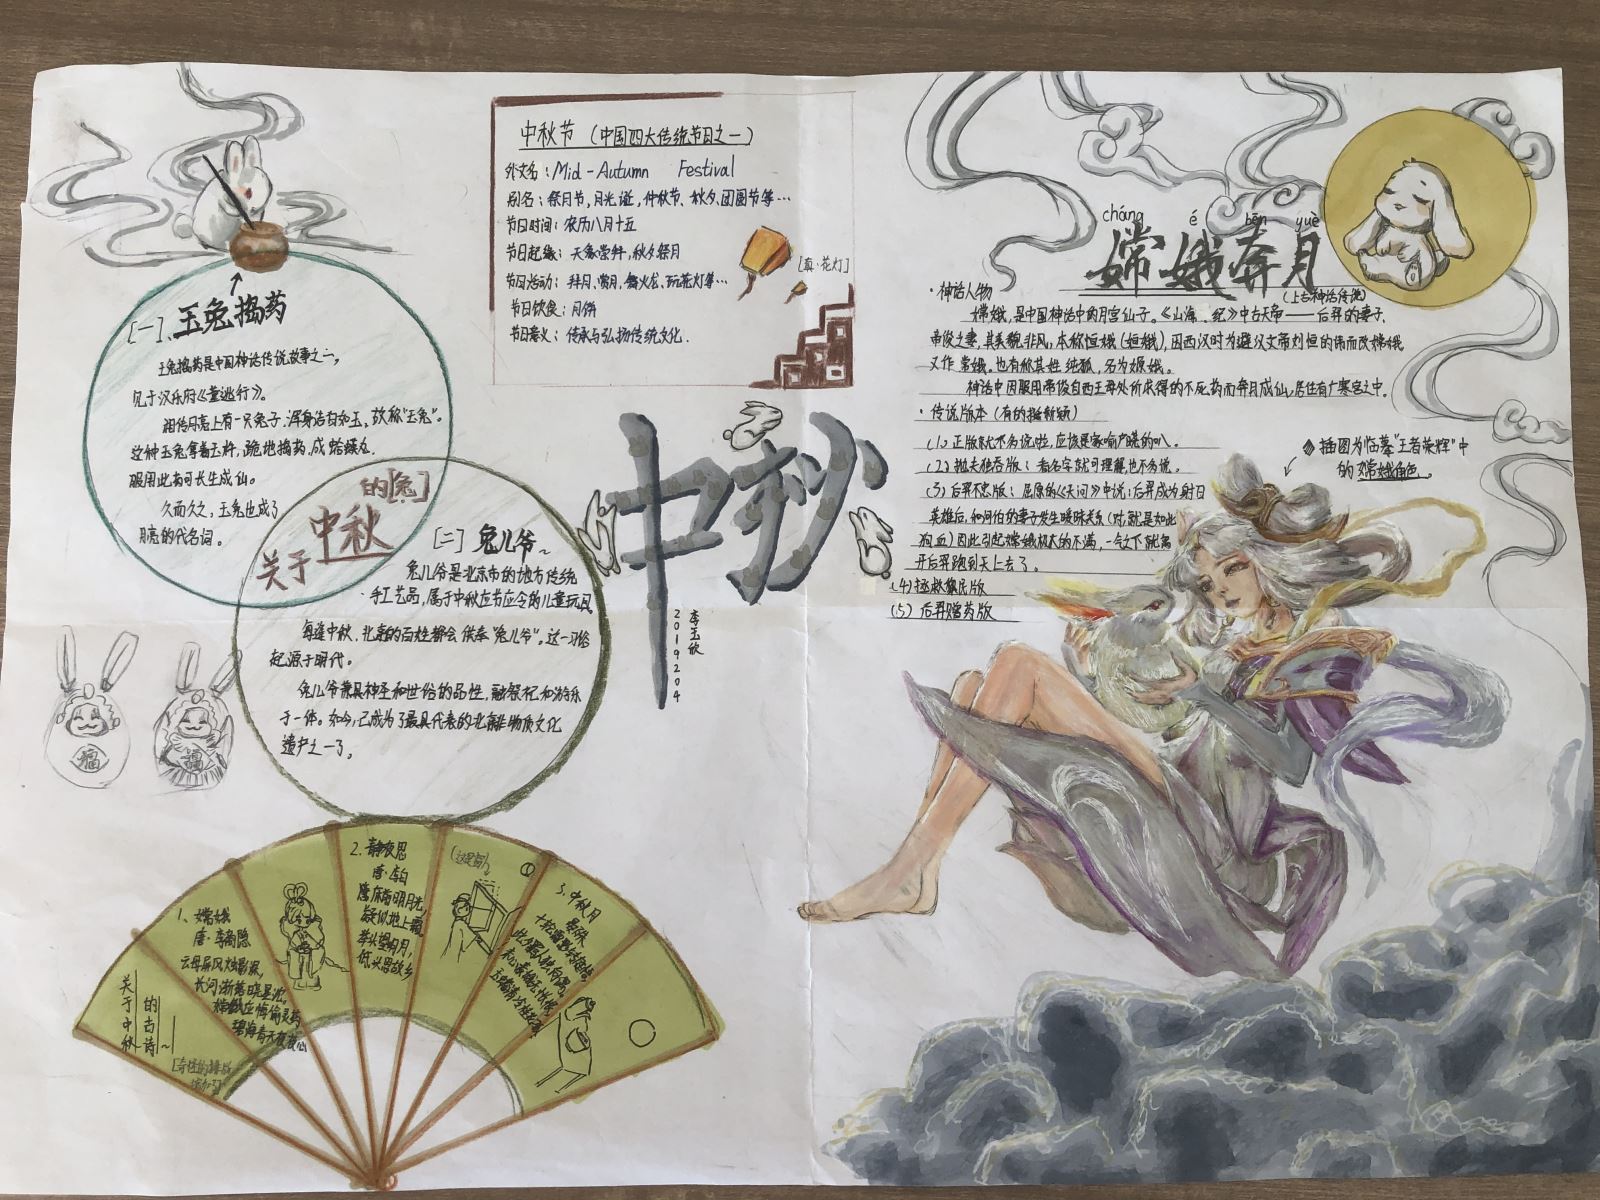 [一]、玉兔捣药
玉兔捣药是中国神话传说故事之一,
见于汉乐府《董逃行》。
相传月亮上有一只兔子,浑身洁白如玉,故称"玉兔"。
这种玉兔拿着玉杵,跪地捣药,成蛤蟆丸.
服用此药可长生成仙。
久而久之,玉兔也成了
月亮的代名词。
关于中秋的[兔]
[二] 兔儿爷~
兔儿爷是北京市的地方传统
手工艺品,属于中秋应节应令的儿童玩具
每逢中秋,北京的百姓都会供奉"兔儿爷"。这一习俗
起源于明代。
兔儿爷兼具神圣和世俗的品性,融祭祀和游乐
于一体。如今,已成为了最具代表的北京非物质文化
遗产之一了。
福
福
中秋节 (中国四大传统节日之一)
外文名:Mid-Autumn Festival
别名:祭月节,月光诞,仲秋节、秋夕、团圆节等…
节日时间:农历八月十五
节日起缘:天象崇拜,秋夕祭月
节日活动:拜月、赏月、舞火龙、玩花灯等…
节日饮食:月饼
节日意义:传承与弘扬传统文化.
[真·花灯]
中秋
李玉欣
2019204
cháng é bēn yuè
嫦娥奔月
(上古神话传说)
·神话人物
嫦娥,是中国神话中的月宫仙子。《山海 经》中古天帝——后羿的妻子,
帝俊之妻,其美貌非凡,本称恒娥(姮娥),因西汉时为避汉文帝刘恒的讳而改嫦娥
又作 常娥。也有称其姓 纯狐,名为嫄娥。
神话中因服用带俊自西王母处所求得的不死药而奔月成仙,居住在广寒宫之中.
·传说版本 (有的挺新颖)
(1)正版就不多说啦,应该是家喻户晓的叭。
(2)拙夫独吞版:看名字就可理解也不多说。
(3)后羿不忠版:屈原的《天问》中说:后羿成为射日
英雄后,和河伯的妻子发生暧昧关系(对,就是如此
狗血)因此引起嫦娥极大的不满,一气之下就离
开后羿跑到天上去了。
(4)拯救黎民版
(5)后羿赠药版
插图为临摹"王者荣辉"中
的 嫦娥角色。
关于中秋的古诗~
1、嫦娥
唐·李商隐
云母屏风烛影深,
长河渐落晓星沉。
嫦娥应悔偷灵药
碧海青天夜夜心
2.静夜思
唐·李白
唐床前明月光,
疑似地上霜
举头望明月,
低头思故乡
(这是窗)
3、中秋月
晏殊
十轮霜影转庭梧,
此夕羁人独向隅。
未必素娥无怅恨
玉蟾清冷桂花孤